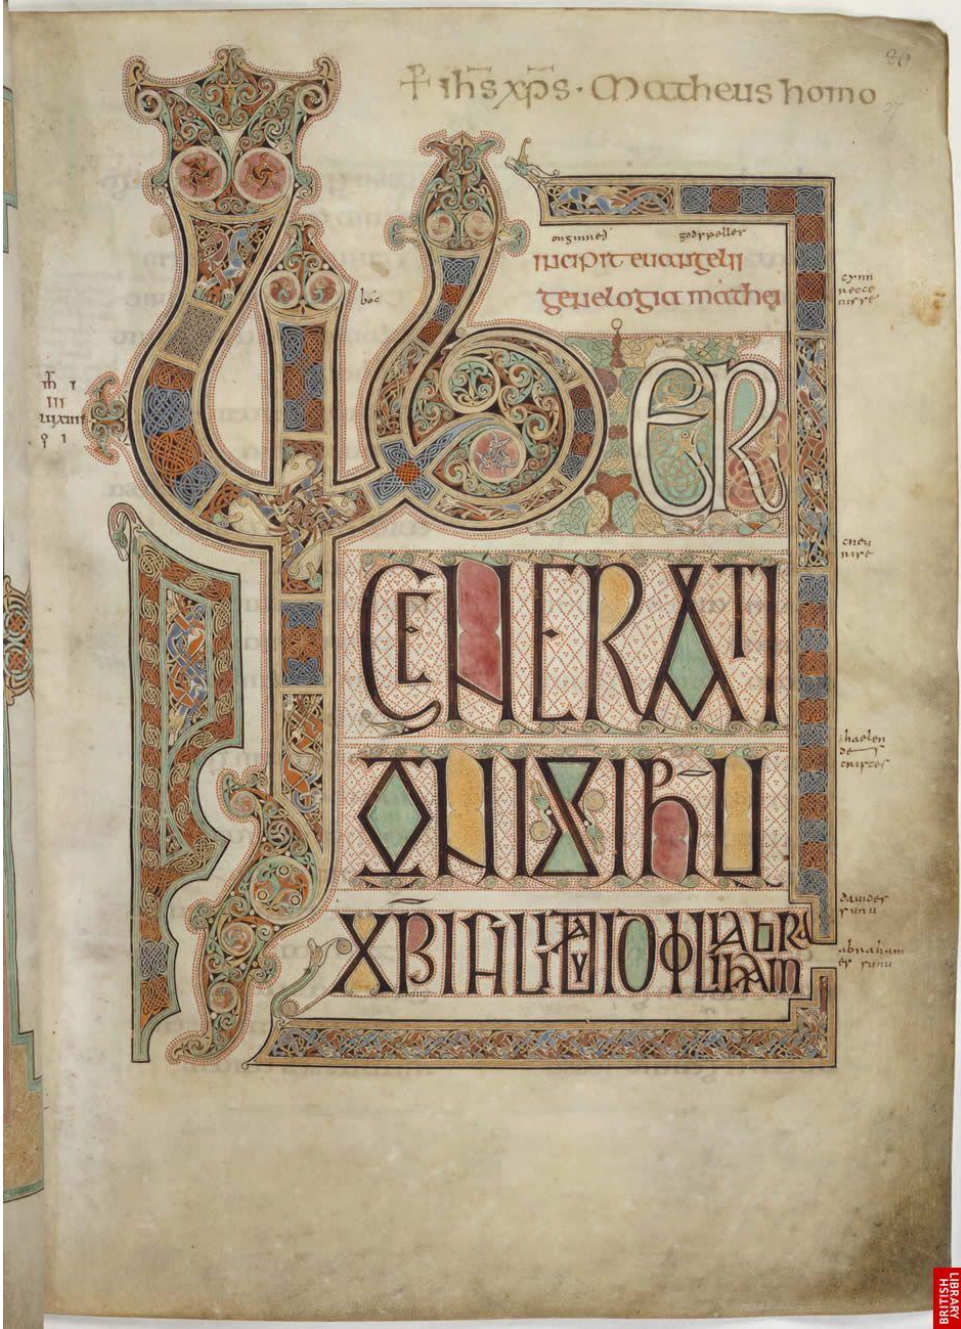 ☩ ih̅s xp̅s · Matheus homo
onginneð godspelles
incipit euangelii
genelogia mathei
cynn
recce
nisse
bóc
LIBER
GENERATI
ONIS IHU
XPI FILII DAUID FILII ABRAHAM
cneu
nise
haelen
des
cristes
dauides
sunu
abraham
es sunu
BRITISH
LIBRARY